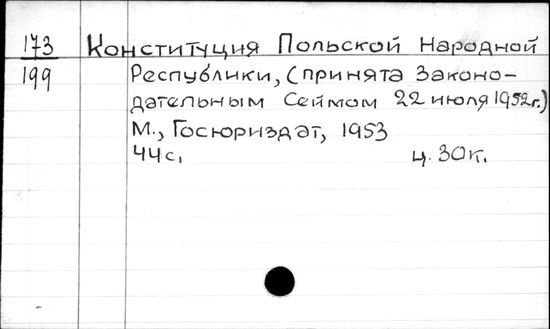 173 Конституция Польской Народной
199 Республики, (принята Законо-
дательным Сеймом 22 июля 1952г.)
М., Госюриздат, 1953
44с. ц. 30к.